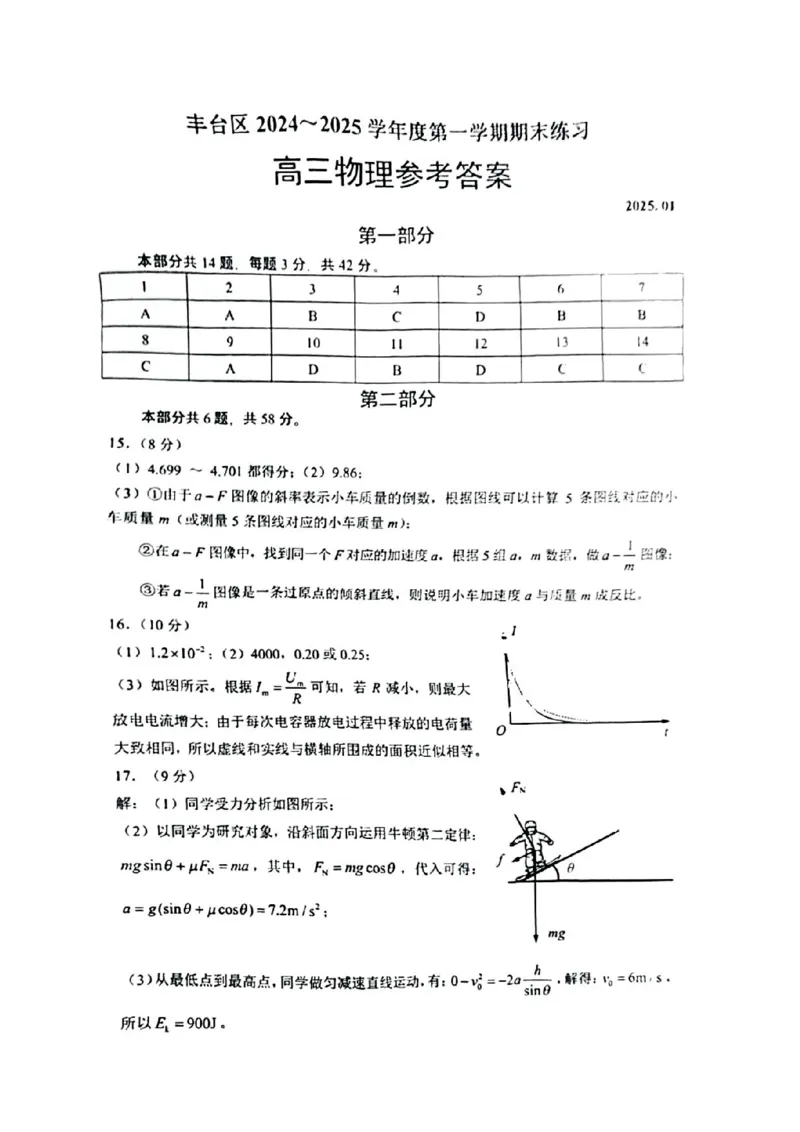 丰台区 2024～2025 学年度第一学期期末练习
高三物理参考答案
2025.01
第一部分
本部分共 14 题，每题 3 分，共 42 分。
1 2 3 4 5 6 7
A A B C D B B
8 9 10 11 12 13 14
C A D B D C C
第二部分
本部分共 6 题，共 58 分。
15.（8 分）
（1）4.699 ～ 4.701 都得分；（2）9.86；
（3）①由于 a－F 图像的斜率表示小车质量的倒数，根据图线可以计算 5 条图线对应的小
车质量 m（或测量 5 条图线对应的小车质量 m）；
②在 a－F 图像中，找到同一个 F 对应的加速度 a，根据 5 组 a，m 数据，做 a－1/m 图像；
③若 a－1/m 图像是一条过原点的倾斜直线，则说明小车加速度 a 与质量 m 成反比。
16.（10 分）
（1）1.2×10⁻²；（2）4000，0.20 或 0.25；
（3）如图所示。根据 Iₘ = Uₘ/R 可知，若 R 减小，则最大
放电电流增大；由于每次电容器放电过程中释放的电荷量
大致相同，所以虚线和实线与横轴所围成的面积近似相等。
I
O
t
17.（9 分）
解：（1）同学受力分析如图所示；
（2）以同学为研究对象，沿斜面方向运用牛顿第二定律：
mg sinθ + μF_N = ma，其中，F_N = mg cosθ，代入可得：
a = g(sinθ + μcosθ) = 7.2m / s²；
F_N
f
θ
mg
（3）从最低点到最高点，同学做匀减速直线运动，有：0－v₀² = －2a h/sinθ，解得：v₀ = 6m/s。
所以 E_k = 900J。